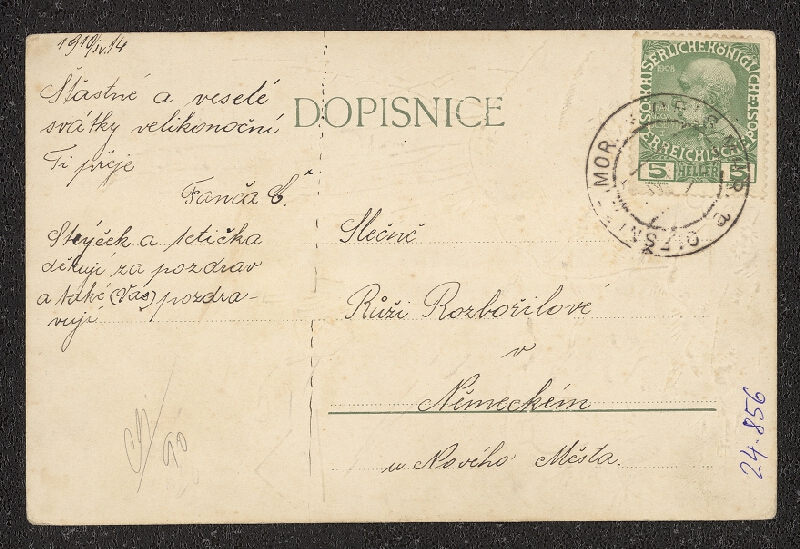 1910/IV.14
Šťastné a veselé
svátky velikonoční
Ti přeje
Fanča Č.
Strýček a tetička
děkují za pozdrav
a také (Vás) pozdra-
vují
DOPISNICE
1908
5 HELLER 5
MOR.
Slečně
Růži Rozbořilové
v
Německém
u Nového Města
90
24.856